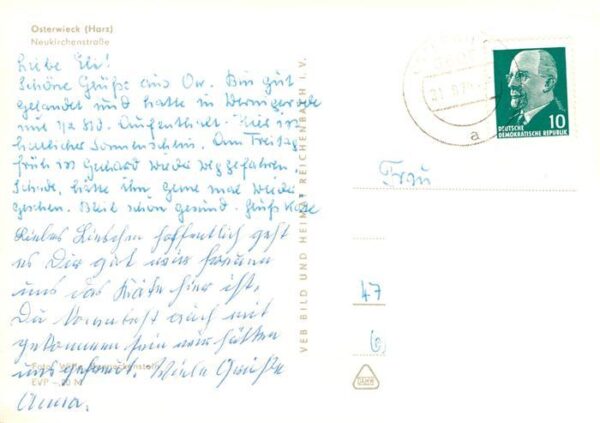 Osterwieck (Harz)
Neukirchenstraße
Liebe Eli!
Schöne Grüße aus Ow. Bin gut
gelandet und hatte in Wernigerode
nur 1/2 Std. Aufenthalt. Hier ist
herrlicher Sonnenschein. Am Freitag
früh ist Gerhard wieder weggefahren.
Schade, hätte ihn gerne mal wieder
gesehen. Bleib schön gesund. Gruß Käte
Liebes Lieschen hoffentlich geht
es Dir gut wir freuen
uns das Käte hier ist.
Du konntest auch mit
gekommen sein wir hätten
uns gefreut. Viele Grüße
Anna.
Foto:
EVP
VEB BILD UND HEIMAT REICHENBACH I. V.
a
10
DEUTSCHE
DEMOKRATISCHE REPUBLIK
Frau
47